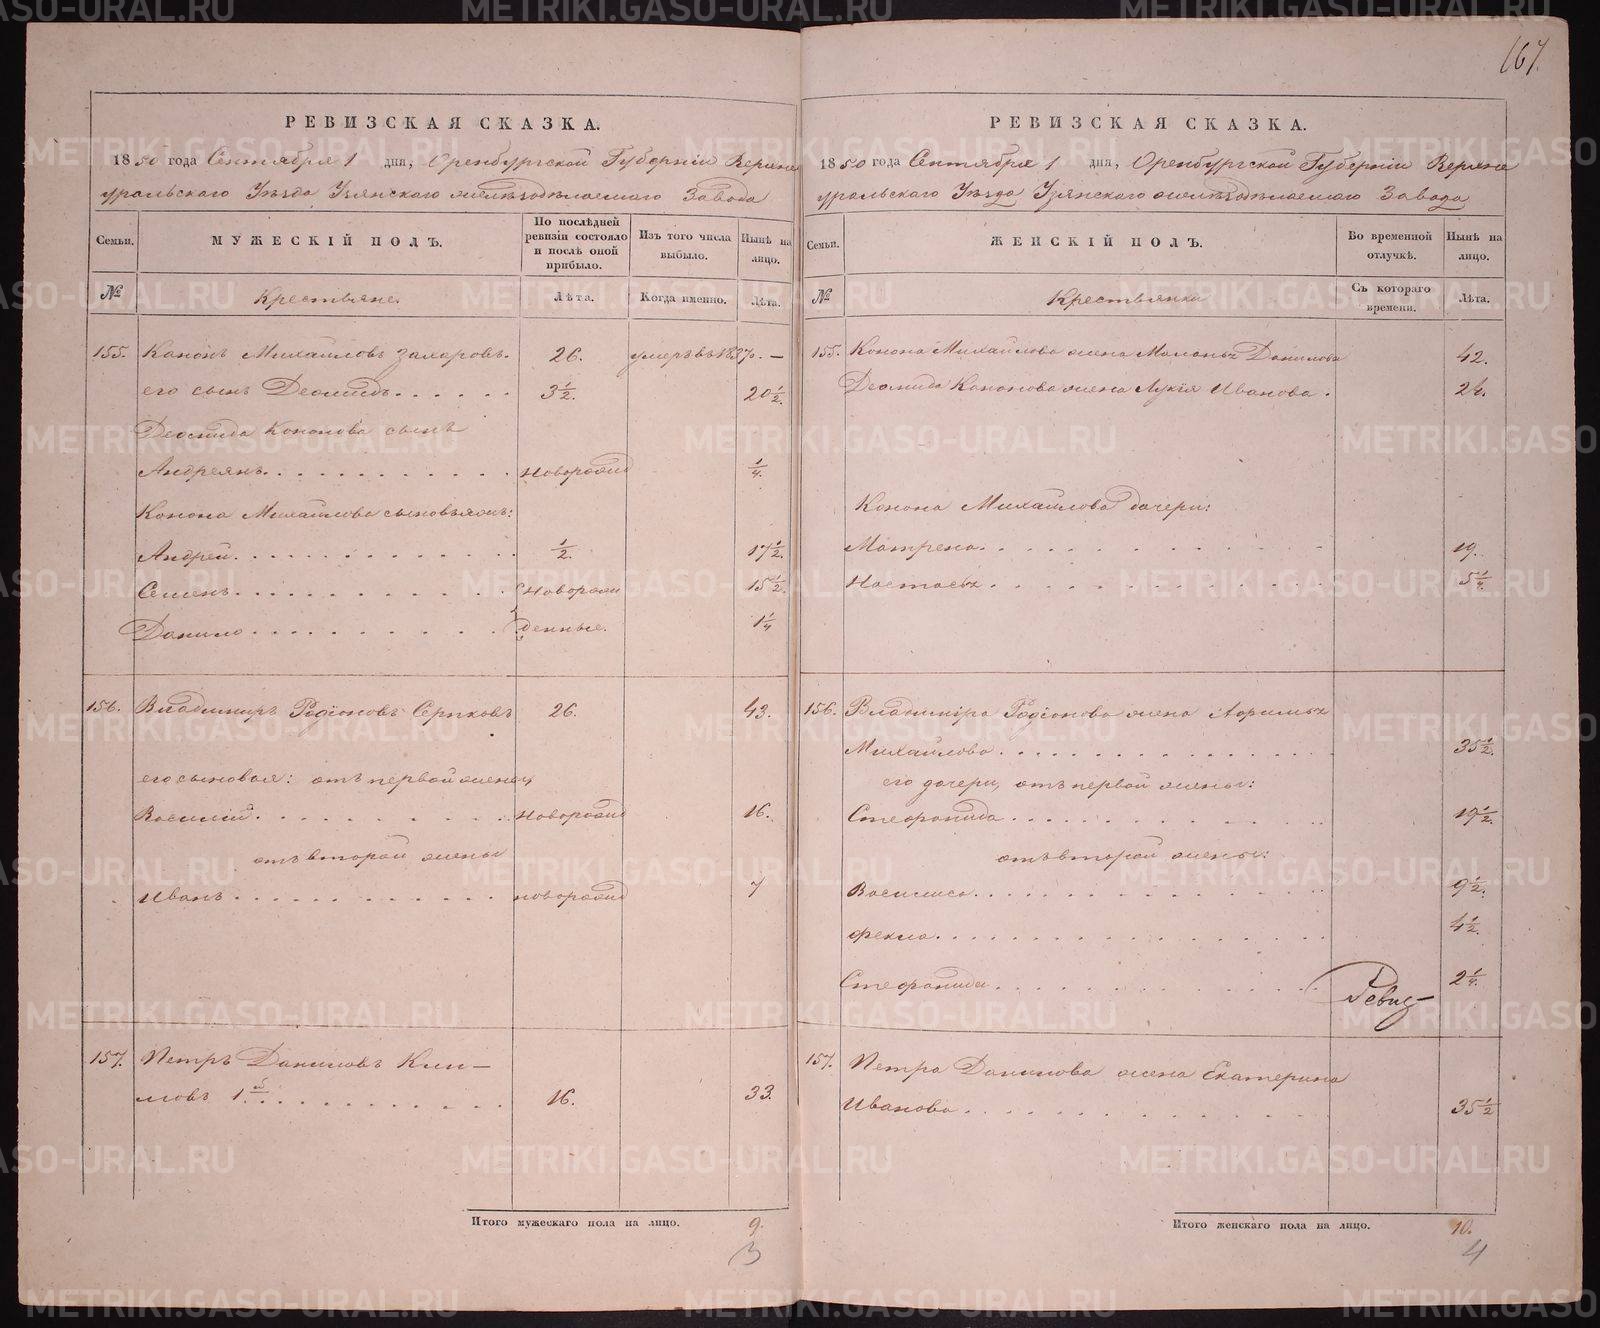 167.
РЕВИЗСКАЯ СКАЗКА.
1850 года Сентября 1 дня, Оренбургской Губерніи Верхне
уральскаго Уѣзда Узянскаго желѣзодѣлаемаго Завода
Семьи.
МУЖЕСКІЙ ПОЛЪ.
По послѣдней ревизіи состояло и послѣ оной прибыло.
Изъ того числа выбыло.
Нынѣ на лицо.
№
Крестьяне.
Лѣта.
Когда именно.
Лѣта.
155. Кононъ Михайловъ Захаровъ. 26. умеръ въ 1837. —
его сынъ Деомидъ. 3½. 20½.
Деомида Кононова сынъ
Андреянъ. новорожд ¼.
Конона Михайлова сыновья:
Андрей. ½. 17½.
Семенъ. новорож 15½
Данило денные. 1¼
156. Владимиръ Родіоновъ Серпковъ 26. 43.
его сыновья: отъ первой жены,
Василій. новорожд 16.
отъ второй жены
Иванъ новорожд 7
157. Петръ Даниловъ Кли—
мовъ 1й. 16. 33.
Итого мужескаго пола на лицо. 9.
3
РЕВИЗСКАЯ СКАЗКА.
1850 года Сентября 1 дня, Оренбургской Губерніи Верхне
уральскаго Уѣзда Узянскаго желѣзодѣлаемаго Завода
Семьи.
ЖЕНСКІЙ ПОЛЪ.
Во временной отлучкѣ.
Нынѣ на лицо.
№
Крестьянки
Съ котораго времени.
Лѣта.
155. Конона Михайлова жена Маланья Данилова 42.
Деомида Кононова жена Лукія Иванова. 24.
Конона Михайлова дочери:
Матрена. 19.
Настасья. 5¼
156. Владиміра Родіонова жена
Михайлова. 35½.
его дочери, отъ первой жены:
Стефанида. 19½.
отъ второй жены:
Василиса. 9½.
Фекла. 4½.
Стефанида. 2¼.
Ревиз—
157. Петра Данилова жена Екатерина
Иванова. 35½
Итого женскаго пола на лицо. 10.
4
METRIKI.GASO-URAL.RU